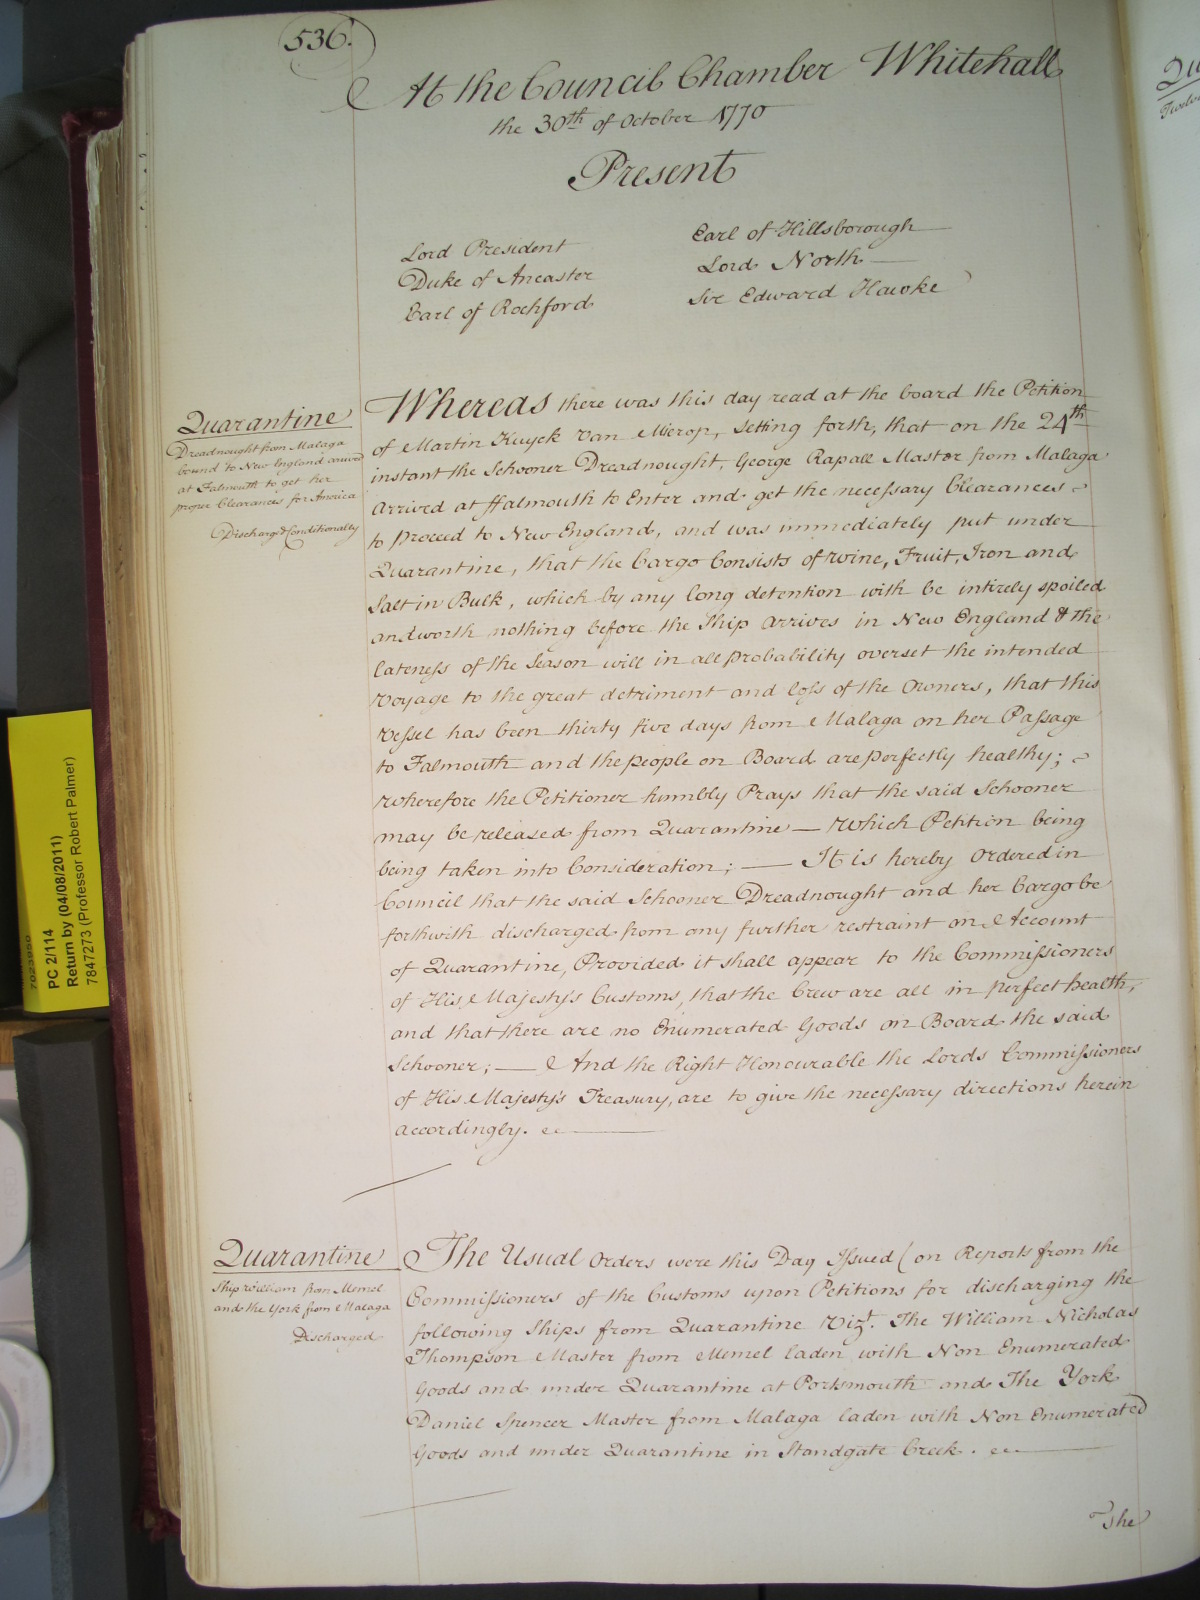 536.
At the Council Chamber Whitehall
the 30th of October 1770
Present
Lord President
Duke of Ancaster
Earl of Rochford
Earl of Hillsborough
Lord North
Sir Edward Hawke
Quarantine
Dreadnought from Malaga
bound to New England arrived
at Falmouth to get her
proper Clearances for America
Discharg'd Conditionally
Whereas there was this day read at the board the Petition
of Martin Kuyck Van Mierop, setting forth, that on the 24th
instant the Schooner Dreadnought, George Rapall Master from Malaga
arrived at ffalmouth to Enter and get the necessary Clearances
to proceed to New England, and was immediately put under
Quarantine, that the Cargo Consists of wine, Fruit, Iron and
Salt in Bulk, which by any long detention with be intirely spoiled
and worth nothing before the Ship arrives in New England & the
lateness of the Season will in all probability overset the intended
Voyage to the great detriment and loss of the Owners, that this
Vessel has been thirty five days from Malaga on her Passage
to Falmouth and the people on Board are perfectly healthy;
wherefore the Petitioner humbly Prays that the said Schooner
may be released from Quarantine — Which Petition being
being taken into Consideration; — It is hereby Ordered in
Council that the said Schooner Dreadnought and her Cargo be
forthwith discharged from any further restraint on Account
of Quarantine, Provided it shall appear to the Commissioners
of His Majesty's Customs, that the Crew are all in perfect health,
and that there are no Enumerated Goods on Board the said
Schooner; — And the Right Honourable the Lords Commissioners
of His Majesty's Treasury, are to give the necessary directions herein
accordingly.
Quarantine
Ship William from Memel
and the York from Malaga
Discharged
The Usual Orders were this Day Issued (on Reports from the
Commissioners of the Customs upon Petitions for discharging the
following Ships from Quarantine Vizt. The William Nicholas
Thompson Master from Memel laden with Non Enumerated
Goods and under Quarantine at Portsmouth and The York
Daniel Spencer Master from Malaga laden with Non Enumerated
Goods and under Quarantine in Standgate Creek.
The
PC 2/114
Return by (04/08/2011)
7847273 (Professor Robert Palmer)